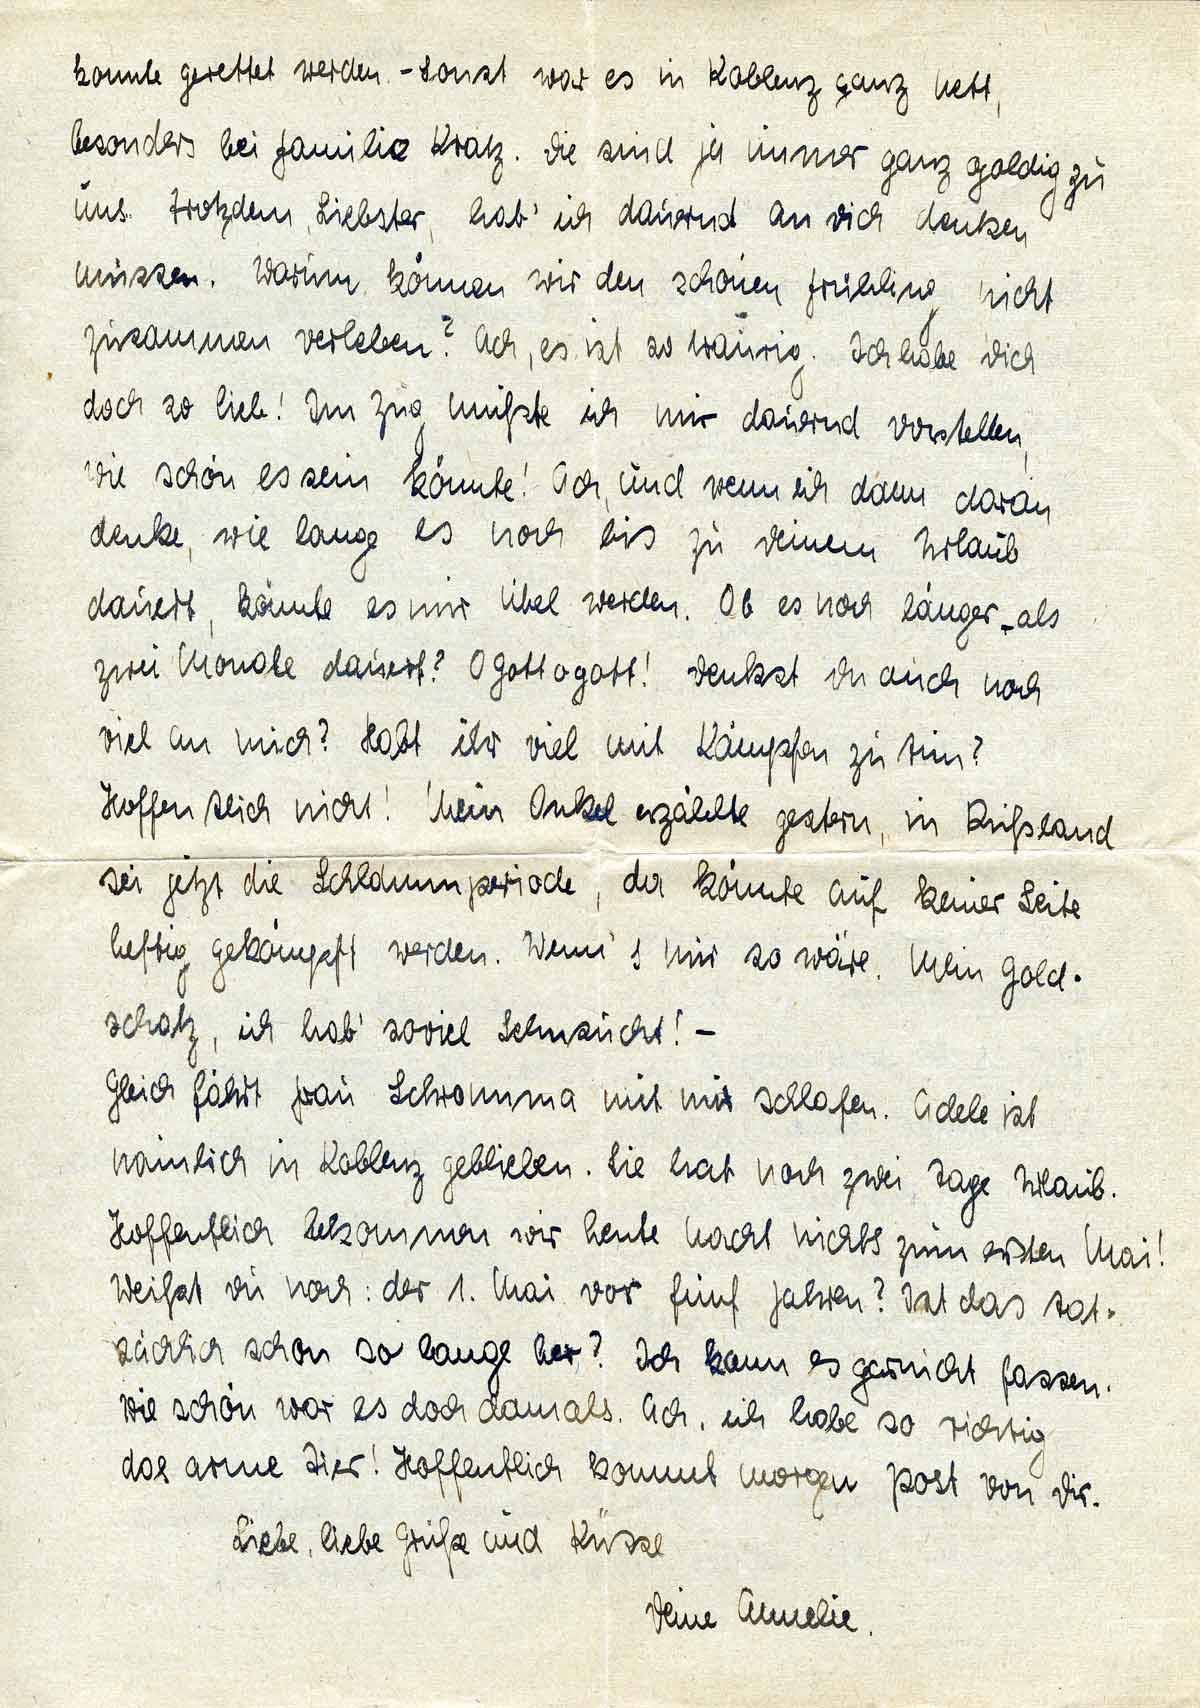 konnte gerettet werden. – Sonst war es in Koblenz ganz nett,
besonders bei Familie Kratz. Die sind ja immer ganz goldig zu
uns. Trotzdem, Liebster, hab' ich dauernd an Dich denken
müssen. Warum können wir den schönen Frühling nicht
zusammen verleben? Ach, es ist so traurig. Ich habe Dich
doch so lieb! Im Zug mußte ich mir dauernd vorstellen,
wie schön es sein könnte! Ach, und wenn ich dann daran
denke, wie lange es noch bis zu Deinem Urlaub
dauert, könnte es mir übel werden. Ob es noch länger als
zwei Monate dauert? O Gottogott! Denkst Du auch noch
viel an mich? Habt ihr viel mit Kämpfen zu tun?
Hoffentlich nicht! Mein Onkel erzählte gestern, in Rußland
sei jetzt die Schlammperiode, da könnte auf keiner Seite
heftig gekämpft werden. Wenn's nur so wäre. Mein Gold-
schatz, ich hab' soviel Sehnsucht! –
Gleich fährt Frau Schramma mit mir schlafen. Adele ist
nämlich in Koblenz geblieben. Sie hat noch zwei Tage Urlaub.
Hoffentlich bekommen wir heute Nacht nichts zum ersten Mai!
Weißt Du noch: der 1. Mai vor fünf Jahren? Ist das tat-
sächlich schon so lange her? Ich kann es garnicht fassen.
Wie schön war es doch damals. Ach, ich habe so richtig
das arme Tier! Hoffentlich kommt morgen Post von Dir.
Liebe, liebe Grüße und Küsse
Deine Annelie.